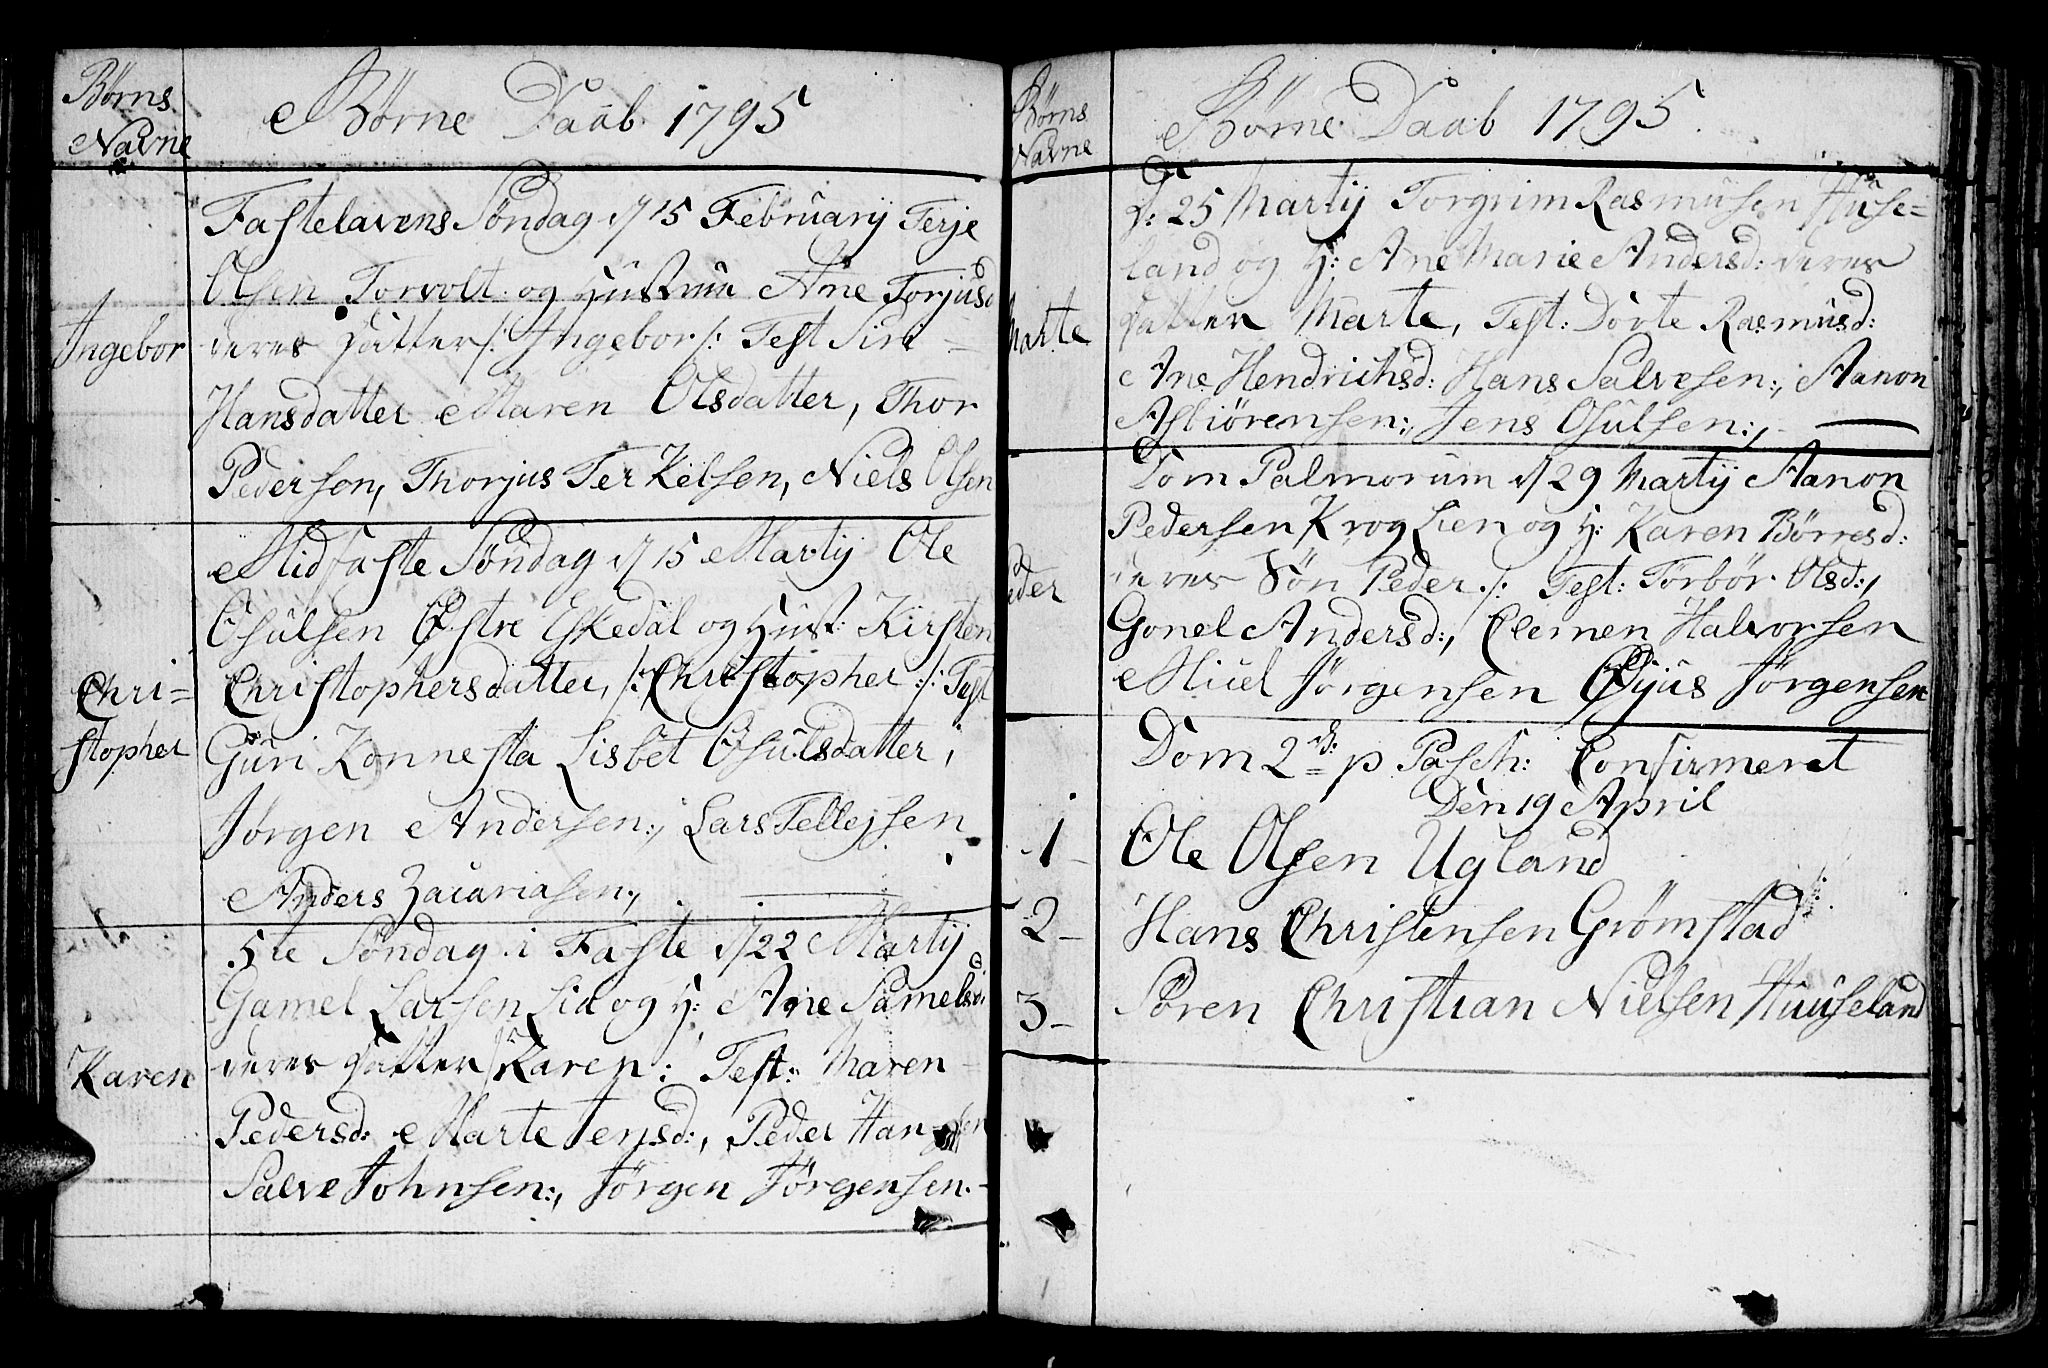 Børns
Navne
Børne Daab 1795
Fastelavens Søndag d 15 Februarij Terje
Olsen Torvolt og Hustrue Ane Torjusd
Ingebor
deres Datter /: Ingebor /: Test Siri
Hansdatter Maren Olsdatter, Thor
Pederson, Thorjus Terkelsen, Niels Olsen
Midfaste Søndag d 15 Martij Ole
Osulsen Østre Eskedal og Hust: Kirsten
Chri=
stopher
Christophersdatter, /: Christopher :/: Test
Guri Konnesta Lisbet Osulsdatter,
Jørgen Andersen:, Lars Tellejsen
Anders Zacariasen:,
5te Søndag i Faste d 22 Martij
Gamel Larsen Lia og H: Ane Samelsd:
Karen
deres Datter /: Karen : Test: Maren
Pedersd: Marte Jensd:, Peder Hansen
Salve Johnsen:, Jørgen Jørgensen.
Børns
Navne
Børne Daab 1795.
d: 25 Martij Torgrim Rasmusen Huse=
land og H: Ane Marie Andersd: deres
Marte
Datter Marte, Test: Dorte Rasmusd:
Ane Hendrichsd: Hans Salvesen:, Aanon
Asbiörensen:, Jens Osulsen:,
Dom Palmorum d 29 Martij Aanon
Pedersen Kroglien og H: Karen Børresd:
Peder
deres Søn Peder /: Test: Torbør Olsd:,
Gonel Andersd:, Clemen Halvorsen
Miuel Jørgensen Øijus Jørgensen
Dom 2d: p Pasch: Confirmeret
Den 19 April
1 Ole Olsen Ugland
2 Hans Christensen Grømstad
3 Søren Christian Nielsen Huuseland